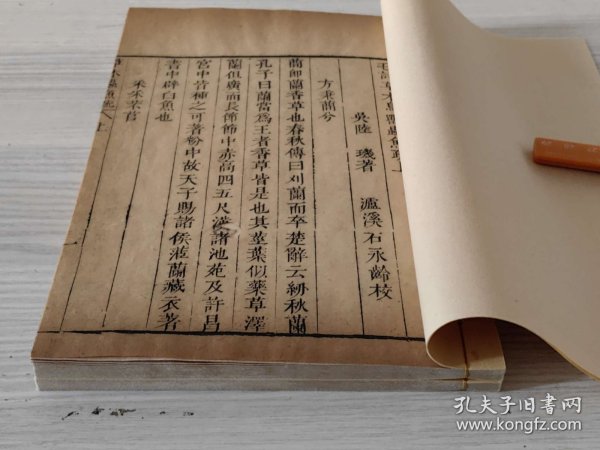 毛詩草木鳥獸蟲魚疏上
吳陸　璣著　瀘溪石永齡校
方秉蕑兮
蕑即蘭香草也春秋傳曰刈蘭而卒楚辭云紉秋蘭
孔子曰蘭當爲王者香草皆是也其莖葉似藥草澤
蘭但廣而長節節中赤高四五尺漢諸池苑及許昌
宮中皆種之可著粉中故天子賜諸侯茝蘭藏衣著
書中辟白魚也
采采芣苢
孔夫子旧書网
www.kongfz.com